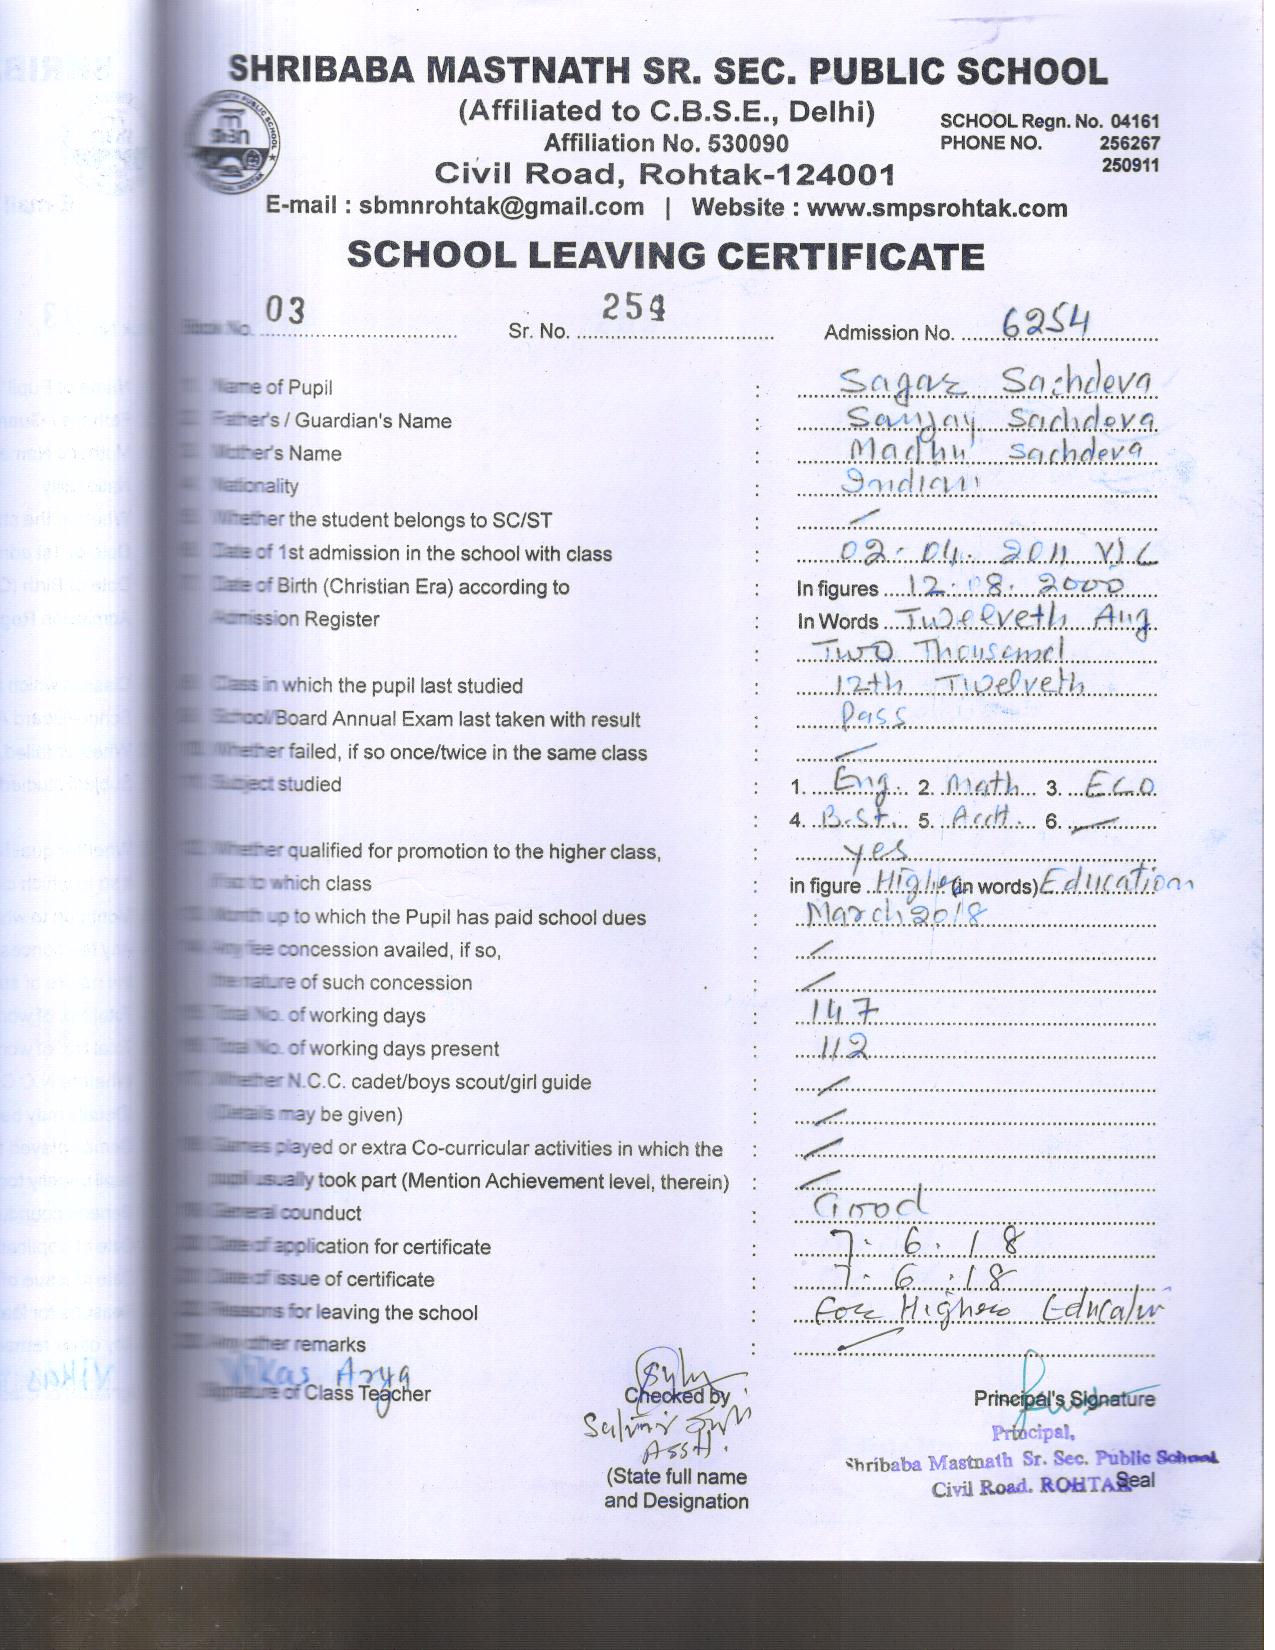 SHRIBABA MASTNATH SR. SEC. PUBLIC SCHOOL
(Affiliated to C.B.S.E., Delhi)
Affiliation No. 530090
SCHOOL Regn. No. 04161
PHONE NO. 256267
250911
Civil Road, Rohtak-124001
E-mail : sbmnrohtak@gmail.com | Website : www.smpsrohtak.com
SCHOOL LEAVING CERTIFICATE
Book No. 03 Sr. No. 254 Admission No. 6254
1. Name of Pupil : Sagar Sachdeva
2. Father's / Guardian's Name : Sanjay Sachdeva
3. Mother's Name : Madhu Sachdeva
4. Nationality : Indian
5. Whether the student belongs to SC/ST :
6. Date of 1st admission in the school with class : 02.04.2011 VI C
7. Date of Birth (Christian Era) according to : In figures 12.08.2000
Admission Register : In Words Twelveth Aug
: Two Thousand
8. Class in which the pupil last studied : 12th Twelveth
9. School/Board Annual Exam last taken with result : Pass
10. Whether failed, if so once/twice in the same class :
11. Subject studied : 1. Eng. 2. Math 3. ECO
: 4. B.St. 5. Acctt. 6.
12. Whether qualified for promotion to the higher class, : yes
if so to which class : in figure Higher (in words) Education
13. Month up to which the Pupil has paid school dues : March 2018
14. Any fee concession availed, if so, :
the nature of such concession :
15. Total No. of working days : 147
16. Total No. of working days present : 112
17. Whether N.C.C. cadet/boys scout/girl guide :
(Details may be given) :
18. Games played or extra Co-curricular activities in which the :
pupil usually took part (Mention Achievement level, therein) :
19. General counduct : Good
20. Date of application for certificate : 7.6.18
21. Date of issue of certificate : 7.6.18
22. Reasons for leaving the school : For Higher Education
23. Any other remarks :
Vikas Arya
Signature of Class Teacher Checked by Principal's Signature
Asstt.
(State full name
and Designation
Principal,
Shribaba Mastnath Sr. Sec. Public School
Civil Road. ROHTAK
Seal